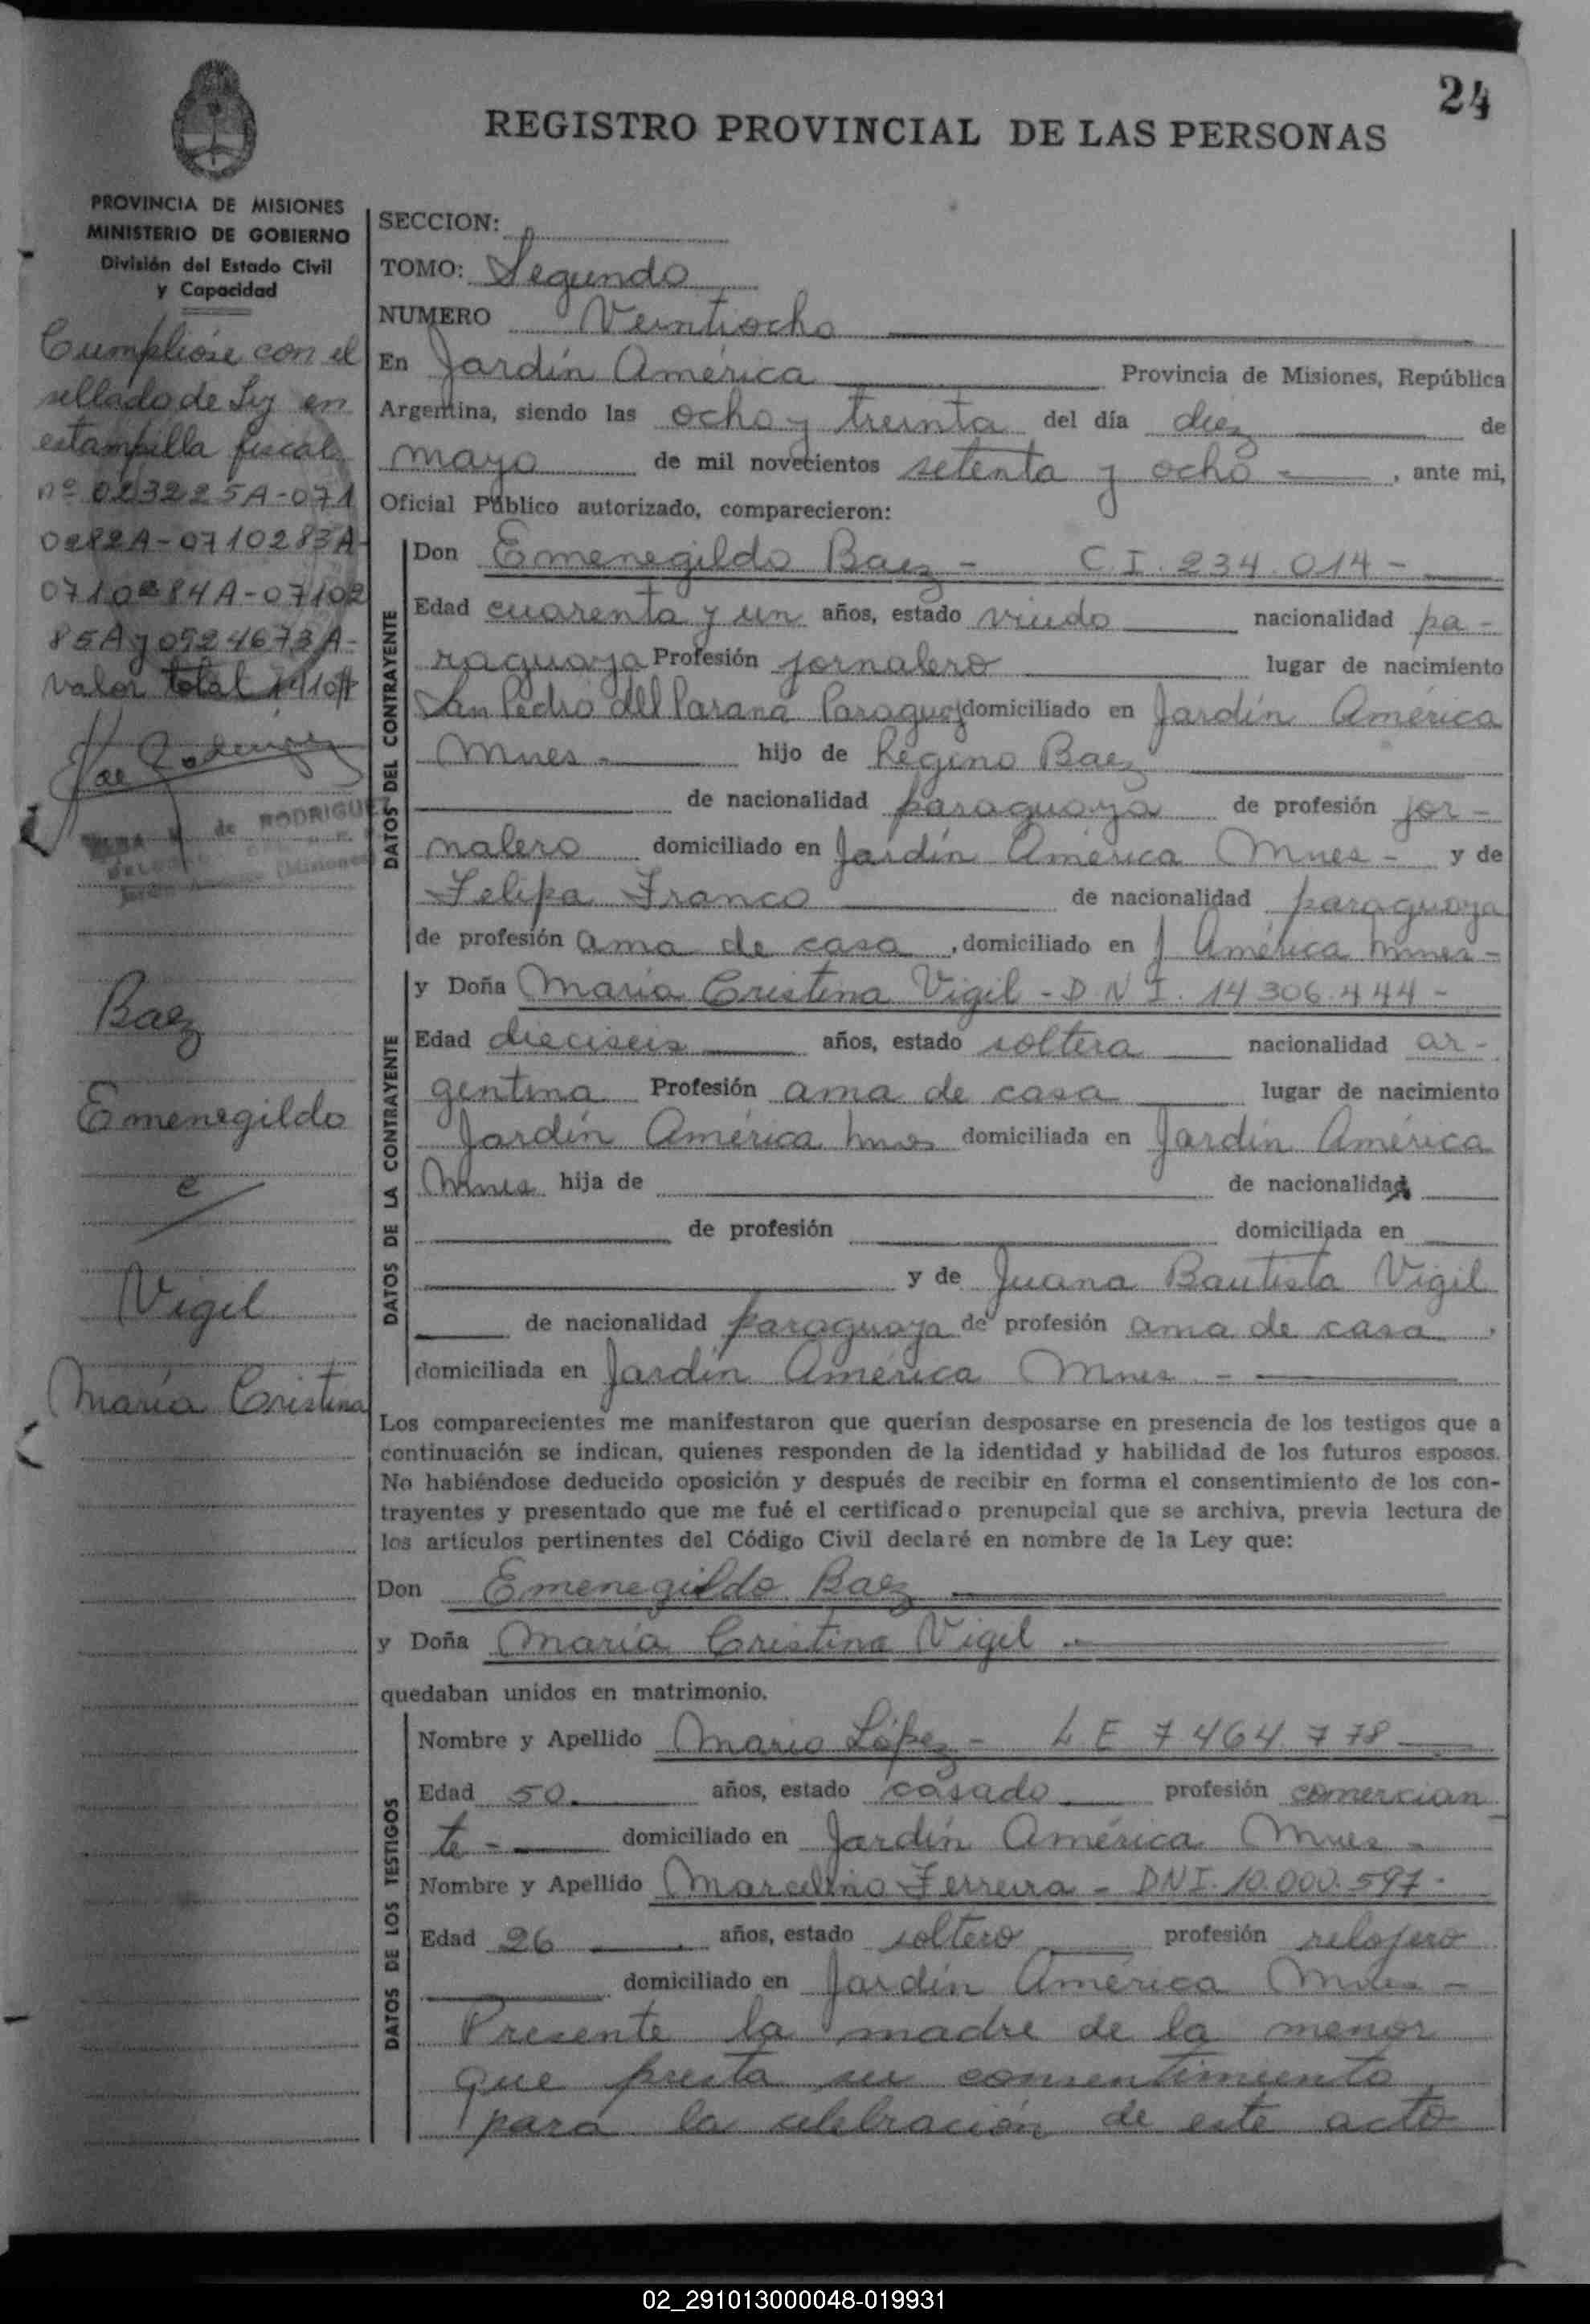 24
REGISTRO PROVINCIAL DE LAS PERSONAS
PROVINCIA DE MISIONES
MINISTERIO DE GOBIERNO
División del Estado Civil
y Capacidad
Cumplióse con el
sellado de Ley en
estampilla fiscal
nº 023225A-071
0282A-0710283A-
0710284A-07102
85A y 0924673A-
valor total
de RODRIGUEZ
(Misiones)
Baez
Emenegildo
c/
Vigil
María Cristina
SECCION:
TOMO: Segundo
NUMERO Veintiocho
En Jardín América Provincia de Misiones, República
Argentina, siendo las ocho y treinta del día diez de
mayo de mil novecientos setenta y ocho - , ante mi,
Oficial Público autorizado, comparecieron:
DATOS DEL CONTRAYENTE
Don Emenegildo Baez - C.I. 234.014 -
Edad cuarenta y un años, estado viudo nacionalidad pa-
raguaya Profesión jornalero lugar de nacimiento
San Pedro del Paraná Paraguay domiciliado en Jardín América
Mnes - hijo de Regino Baez
de nacionalidad paraguaya de profesión jor-
nalero domiciliado en Jardín América Mnes - y de
Felipa Franco de nacionalidad paraguaya
de profesión ama de casa , domiciliado en J América Mnes -
DATOS DE LA CONTRAYENTE
y Doña María Cristina Vigil - D.N.I. 14.306.444 -
Edad dieciseis años, estado soltera nacionalidad ar-
gentina Profesión ama de casa lugar de nacimiento
Jardín América Mnes domiciliada en Jardín América
Mnes hija de de nacionalidad
de profesión domiciliada en
y de Juana Bautista Vigil
de nacionalidad paraguaya de profesión ama de casa ,
domiciliada en Jardín América Mnes -
Los comparecientes me manifestaron que querían desposarse en presencia de los testigos que a
continuación se indican, quienes responden de la identidad y habilidad de los futuros esposos.
No habiéndose deducido oposición y después de recibir en forma el consentimiento de los con-
trayentes y presentado que me fué el certificado prenupcial que se archiva, previa lectura de
los artículos pertinentes del Código Civil declaré en nombre de la Ley que:
Don Emenegildo Baez
y Doña María Cristina Vigil -
quedaban unidos en matrimonio.
DATOS DE LOS TESTIGOS
Nombre y Apellido Mario López - L E 7.464.778
Edad 50 años, estado casado profesión comercian
te - domiciliado en Jardín América Mnes -
Nombre y Apellido Marcelino Ferreira - DNI. 10.000.597 -
Edad 26 años, estado soltero profesión relojero
domiciliado en Jardín América Mnes -
Presente la madre de la menor
que presta su consentimiento
para la celebración de este acto
02_291013000048-019931